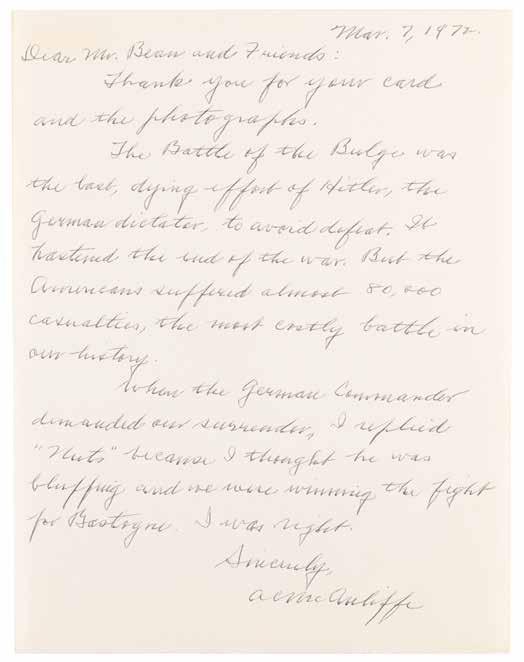 Mar. 7, 1972.
Dear Mr. Bean and Friends:
Thank you for your card
and the photographs.
The Battle of the Bulge was
the last, dying effort of Hitler, the
German dictator, to avoid defeat. It
hastened the end of the war. But the
Americans suffered almost 80,000
casualties, the most costly battle in
our history.
When the German Commander
demanded our surrender, I replied
"Nuts" because I thought he was
bluffing and we were winning the fight
for Bastogne. I was right.
Sincerely,
ACMcAuliffe